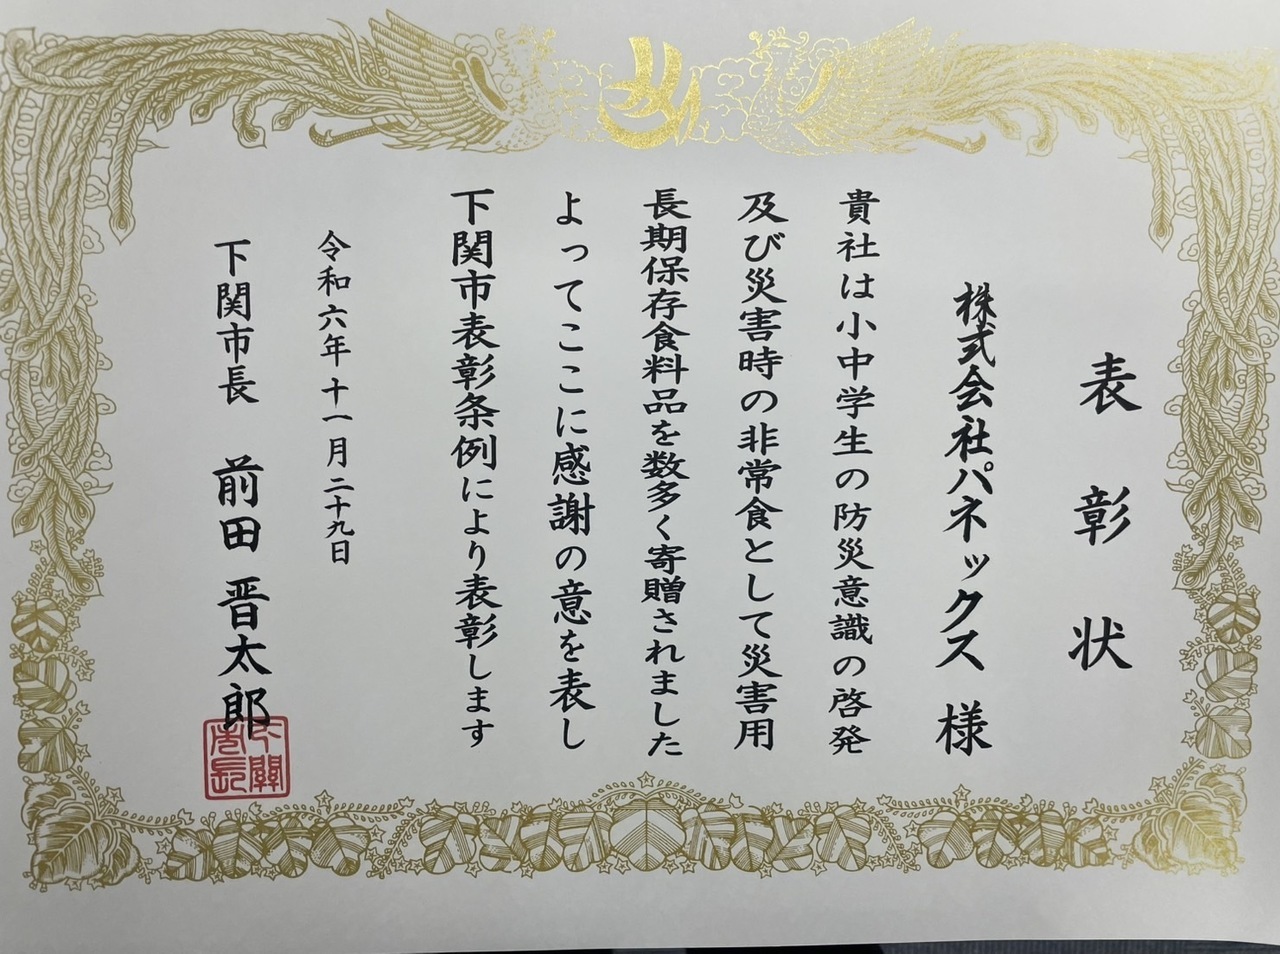 表彰状
株式会社パネックス 様
貴社は小中学生の防災意識の啓発
及び災害時の非常食として災害用
長期保存食料品を数多く寄贈されました
よってここに感謝の意を表し
下関市表彰条例により表彰します
令和六年十一月二十九日
下関市長 前田 晋太郎
下關
市長